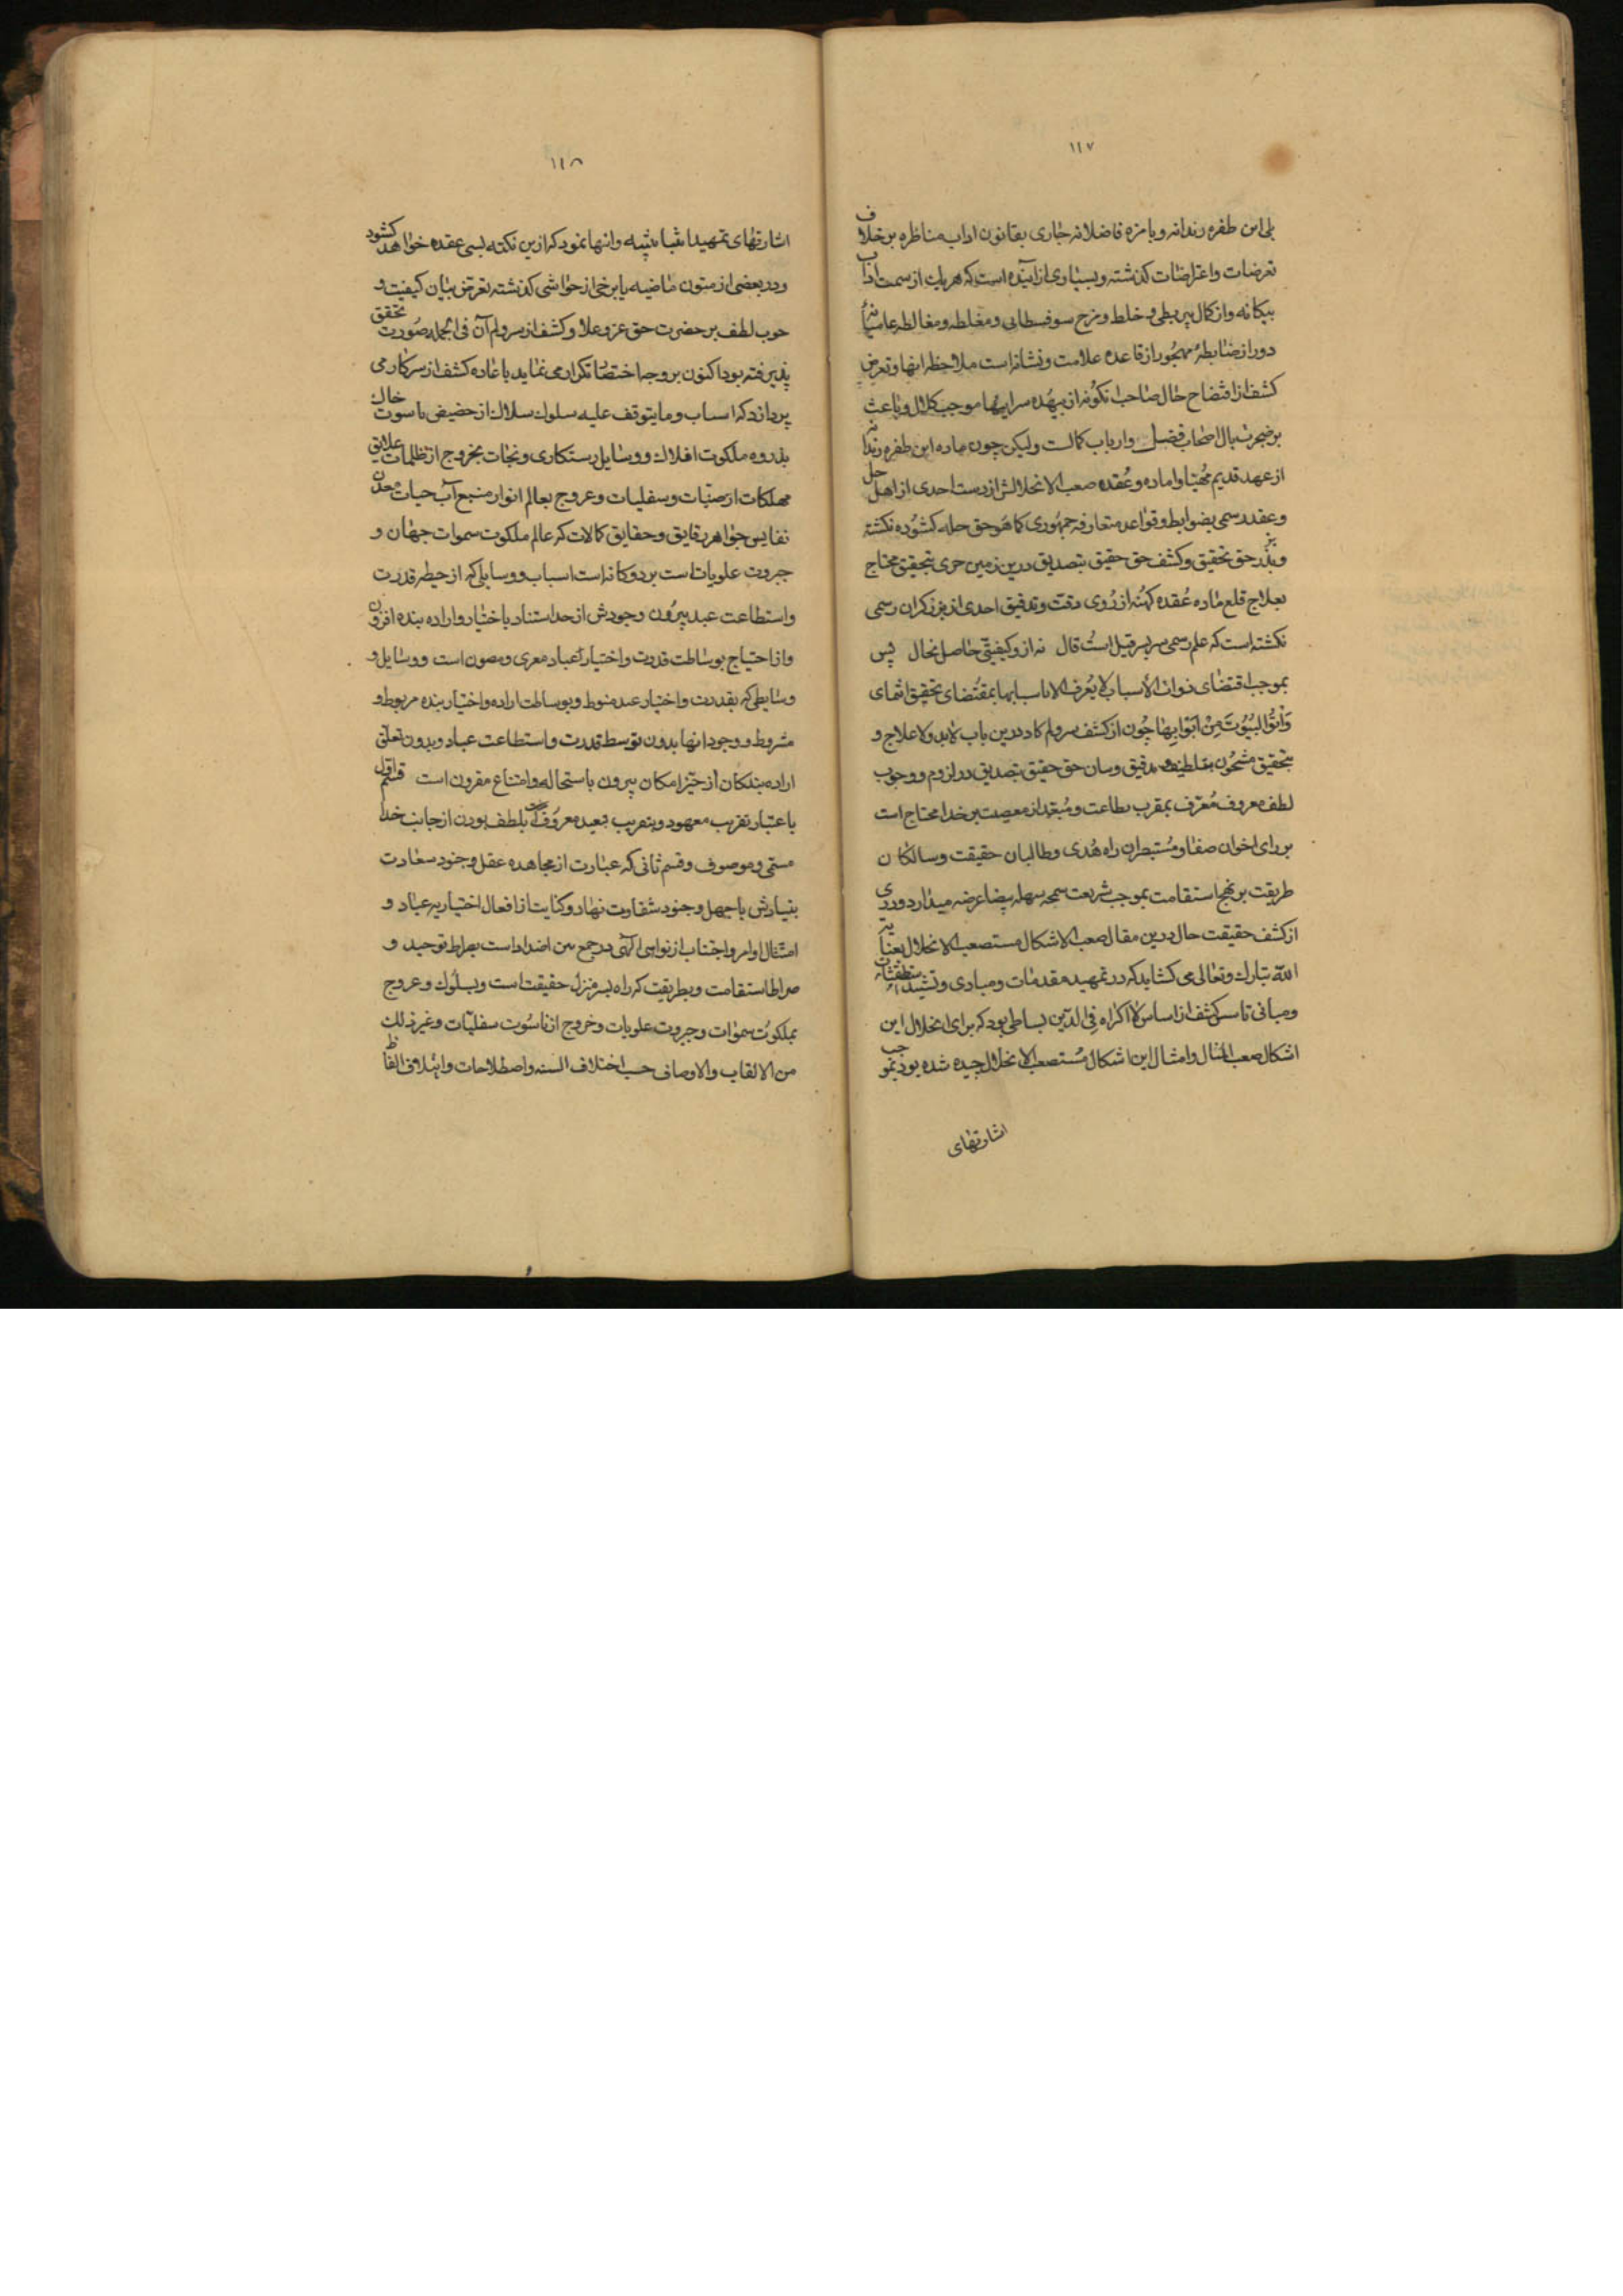 ۱۱۷
بلی این طفره رندانه و با مزه فاضلانه جاری بقانون اداب مناظره بر خلاف
تعرضات و اعتراضات کذشته و بسیاری از آینده است که هر یک از سمت اداب
بیکانه و از کمال بیربطی و خلط و مزج سوفسطایی و مغلطه و مغالطه عامیانه
دور از ضابطه و مهجور از قاعده علامت و نشانه است ملاحظه انها و تعرض
کشف از افتضاح حال صاحب انکونه از بیهده سراییها موجب کلال و باعث
بر ضجرت بال اصحاب فضل و ارباب کمالست ولیکن چون ماده این طفره رندانه
از عهد قدیم مهیا و اماده و عقده صعب الانحلالش از دست احدی از اهل حل
و عقد رسمی بضوابط و قواعد متعارفه جمهوری کما هو حق حله کشوده نکشته
حق تحقیق و کشف حق حقیق بتصدیق درین زمین حری بتحقیق محتاج
بعلاج قلع ماده عقده کهنه از روی دقت و تدقیق احدی از رسمی
نکشته است که علم رسمی سر بسر قیل است قال نه از و کیفیتی حاصل نحال پس
بموجب اقتضای ذوات الاسباب لا یعرف الا باسبابها بمقتضای تحقیق انتمای
وَأتوُا البُیُوتَ مِنْ اَبْوابِها چون از کشف سر و لم کار درین باب لابد و لا علاج و
بتحقیق مشحون و تدقیق و سان حق حقیق بتصدیق در لزوم و وجوب
لطف معروف مُعرّف بمقرب بطاعت و مُبعّد از معصیت بر خدا محتاج است
بر رای اخوان صفا و مستبصران راه هُدی و طالبان حقیقت و سالکان
طریقت بر نهج استقامت بموجب شریعت سمحه سهله بیضا عرضه میدارد و دری
از کشف حقیقت حال درین مقال صعب الاشکال مستصعب الانحلال بعنایت
اللّه تبارک و تعالی می کشاید که در تمهید مقدمات و مبادی و تشیید
و مبانی تاسیس کشف از اساس لا اکراه فی الدّین بساطی بود که برای انحلال این
اشکال صعب المثال و امثال این اشکال مستصعب الانحلال چیده شده بود
اشارتهای
۱۱۸
اشارتهای تمهید و انها نمود که ازین نکته بسی عقده خواهد کشود
و در بعضی از متون ماضیه یا برخی از حواشی کذشته تعرض بیان کیفیت و
لطف بر حضرت حق عز و علا و کشف از سر و لم آن فی الجمله صورت تحقق
پذیرفته بود اکنون بر وجه اختصار تکرار می نماید باعاده کشف از سر کار می
پردازد که اسباب و ما یتوقف علیه سلوک سلاک از حضیض ناسوت خاک
بذروه ملکوت افلاک و وسایل رستکاری و نجات بخروج از ظلمات علایق
مهلکات ارضیّات و سفلیات و عروج بعالم انوار منبع آب حیات معدن
نفایس جواهر دقایق و حقایق کمالات که عالم ملکوت سموات جهان و
جبروت علویات است بر دو کانه است اسباب و وسایلی که از حیطه قدرت
و استطاعت عبد بیرون وجودش از حد استناد باختیار و اراده بنده افزون
و از احتیاج بوساطت قدرت و اختیار عباد معری و مصون است و وسایل و
وسایطی که بقدرت و اختیار عبد منوط و بوساطت اراده و اختیار بنده مربوط و
مشروط و وجود انها بدون توسط قدرت و استطاعت عباد و بدون تعلق
اراده بندکان از حیّز امکان بیرون باستحاله و امتناع مقرون است قسم اول
باعتبار تقریب معهود و بتقریب بعید معروف بلطف بودن از جانب خدا
مسمی و موصوف و قسم ثانی که عبارت از مجاهده عقل و جنود سعادت
بنیادش با جهل و جنود شقاوت نهاد و کنایت از افعال اختیاریه عباد و
امتثال اوامر و اجتناب از نواهی الهی در جمع بین اضداد است بصراط توحید و
صراط استقامت و بطریقت که راه بسر منزل حقیقت است و بسلوک و عروج
بملکوت سموات و جبروت علویات و خروج از ناسوت سفلیّات و غیر ذلک
من الالقاب والاوصاف حسب اختلاف السنه و اصطلاحات و ایتلاف الفاظ